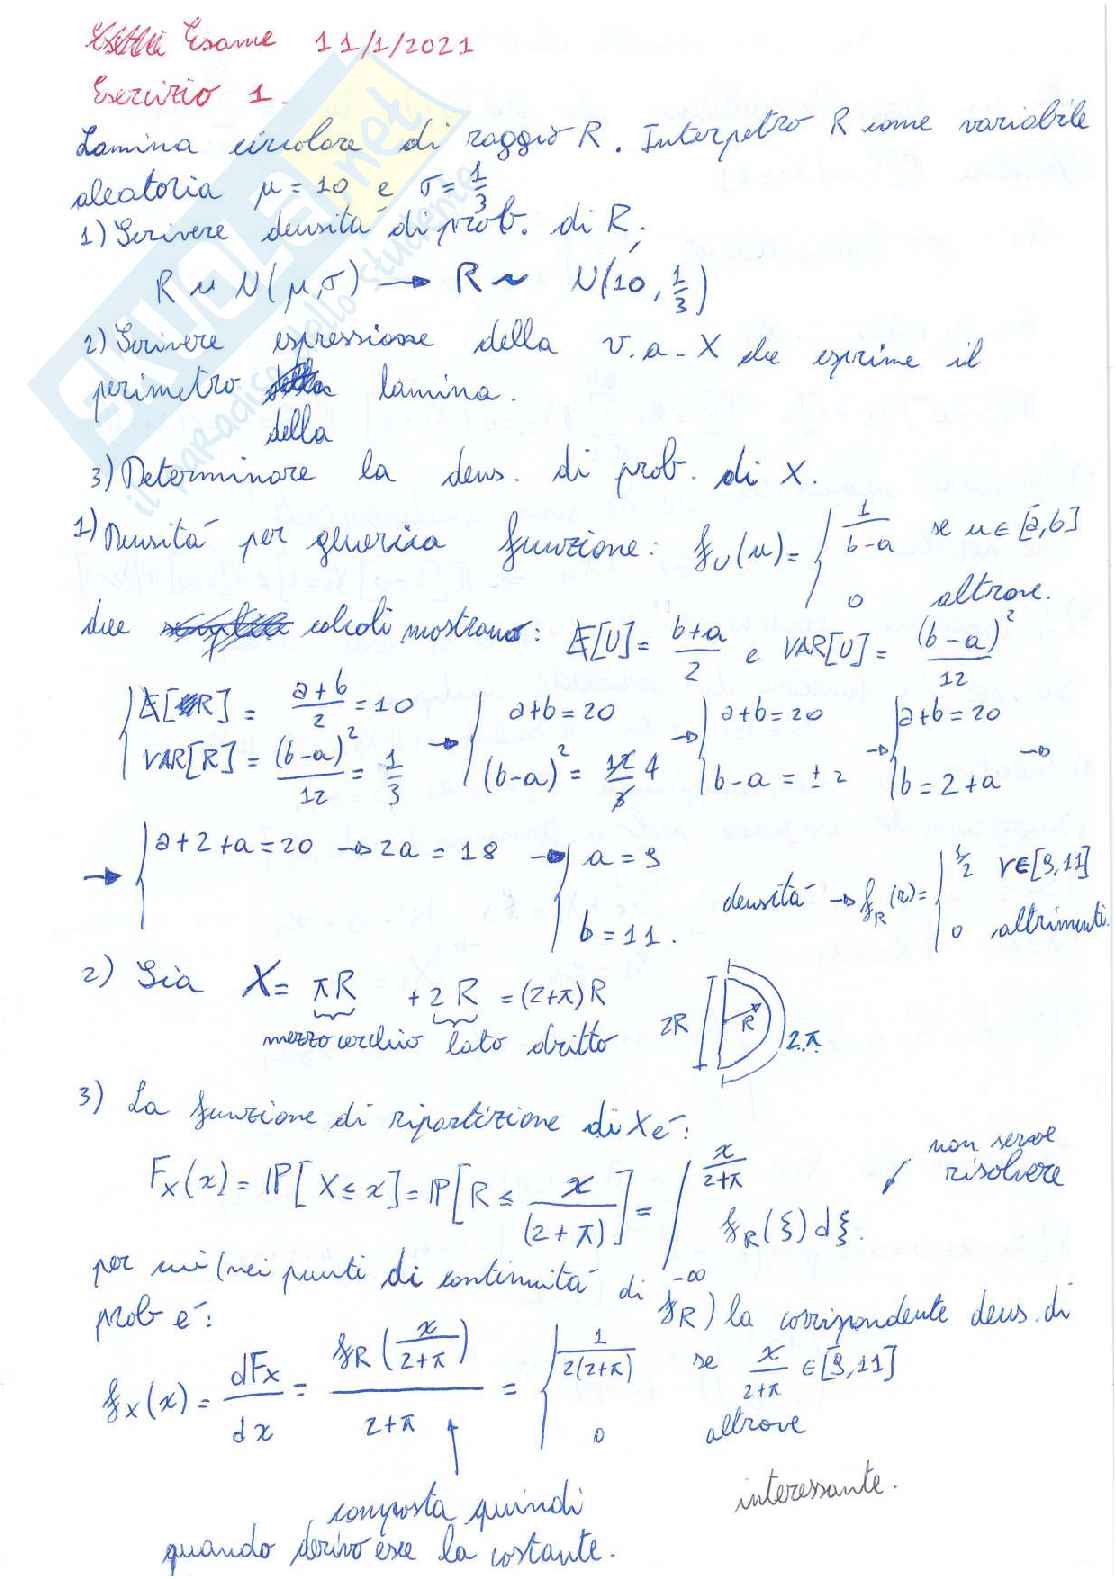 Esame 11/1/2021
Esercizio 1.
Lamina circolare di raggio R. Interpetro R come variabile
aleatoria μ = 10 e σ = 1/3
1) Scrivere densitá di prob. di R;
R ~ N(μ,σ) → R ~ N(10, 1/3)
2) Scrivere espressione della v.a - X che esprime il
perimetro della lamina.
3) Determinare la dens. di prob. di X.
1) Densitá per generica funzione: f_U(u) = { 1/(b-a) se u ∈ [a,b]
0 altrove.
due calcoli mostrano: E[U] = (b+a)/2 e VAR[U] = (b-a)²/12
{ E[R] = (a+b)/2 = 10 → { a+b = 20 → { a+b = 20 → { a+b = 20 →
VAR[R] = (b-a)²/12 = 1/3 (b-a)² = 4 b-a = ± 2 b = 2+a
→ { a+2+a = 20 → 2a = 18 → { a = 9
b = 11.
densitá → f_R(r) = { 1/2 r ∈ [9,11]
0 altrimenti.
2) Sia X = πR + 2R = (2+π)R
mezzo cerchio lato dritto
2R R 2.π
3) La funzione di ripartizione di X é:
F_X(x) = P[X ≤ x] = P[R ≤ x/(2+π)] = ∫_{-∞}^{x/(2+π)} f_R(ξ)dξ.
non serve
risolvere
per cui (nei punti di continuitá di f_R) la corrispondente dens. di
prob é:
f_X(x) = dF_X/dx = f_R(x/(2+π))/(2+π) = { 1/(2(2+π)) se x/(2+π) ∈ [9,11]
0 altrove
composta quindi
quando derivo esce la costante.
interessante.
SKUOLA.net
il paradiso dello studente